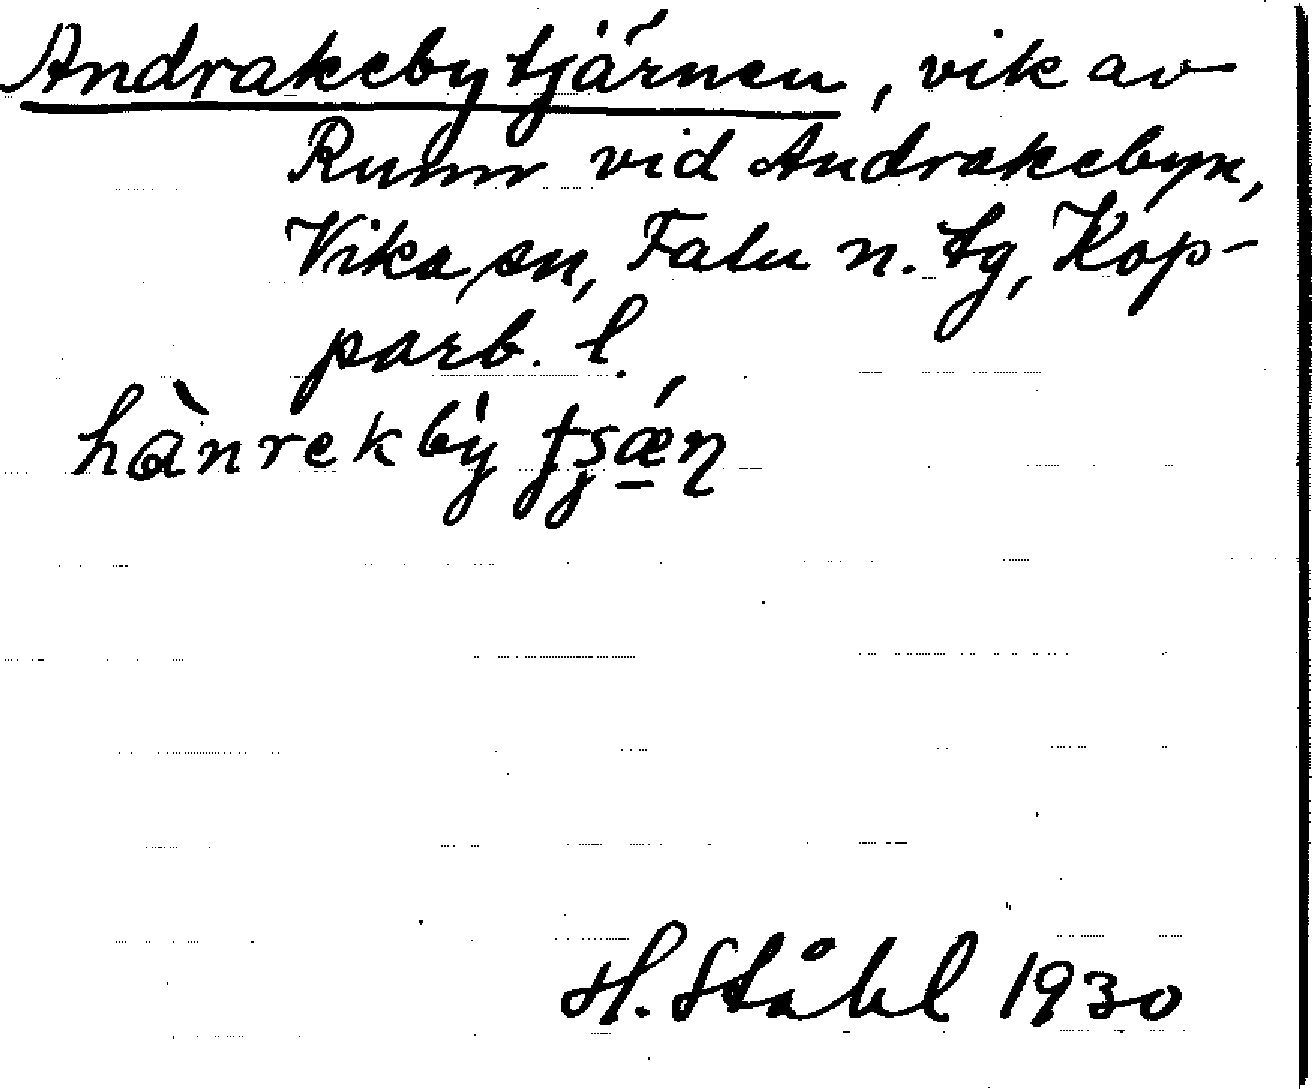 Andrakebytjärnen, vik av
Runn vid Andrakebyn,
Vika sn, Falu n. tg, Kop-
parb. l.
hànrekbỳ
H. Ståhl 1930